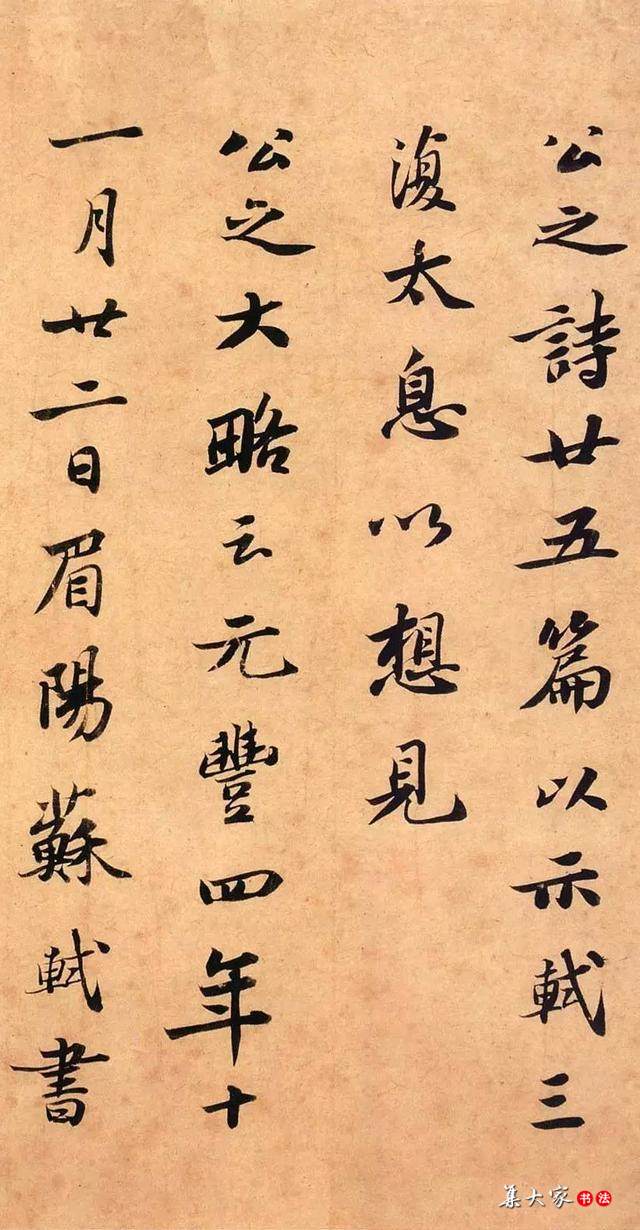 公之詩廿五篇以示軾三
復太息以想見
公之大略云元豐四年十
一月廿二日眉陽蘇軾書
集大家书法